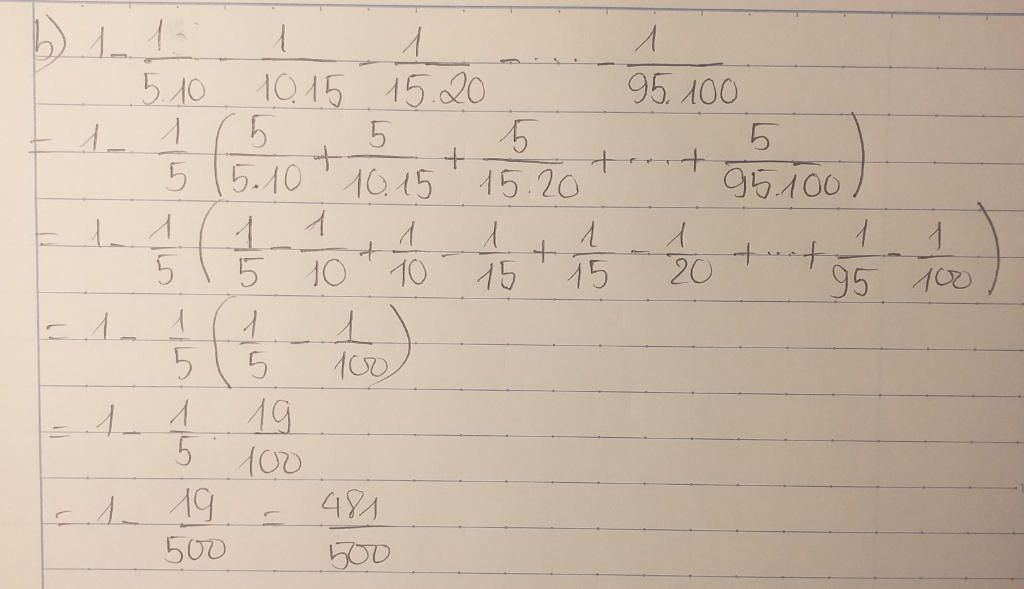 b) 1 - \frac{1}{5.10} - \frac{1}{10.15} - \frac{1}{15.20} - ... - \frac{1}{95.100}
= 1 - \frac{1}{5} ( \frac{5}{5.10} + \frac{5}{10.15} + \frac{5}{15.20} + ... + \frac{5}{95.100} )
= 1 - \frac{1}{5} ( \frac{1}{5} - \frac{1}{10} + \frac{1}{10} - \frac{1}{15} + \frac{1}{15} - \frac{1}{20} + ... + \frac{1}{95} - \frac{1}{100} )
= 1 - \frac{1}{5} ( \frac{1}{5} - \frac{1}{100} )
= 1 - \frac{1}{5} . \frac{19}{100}
= 1 - \frac{19}{500} = \frac{481}{500}